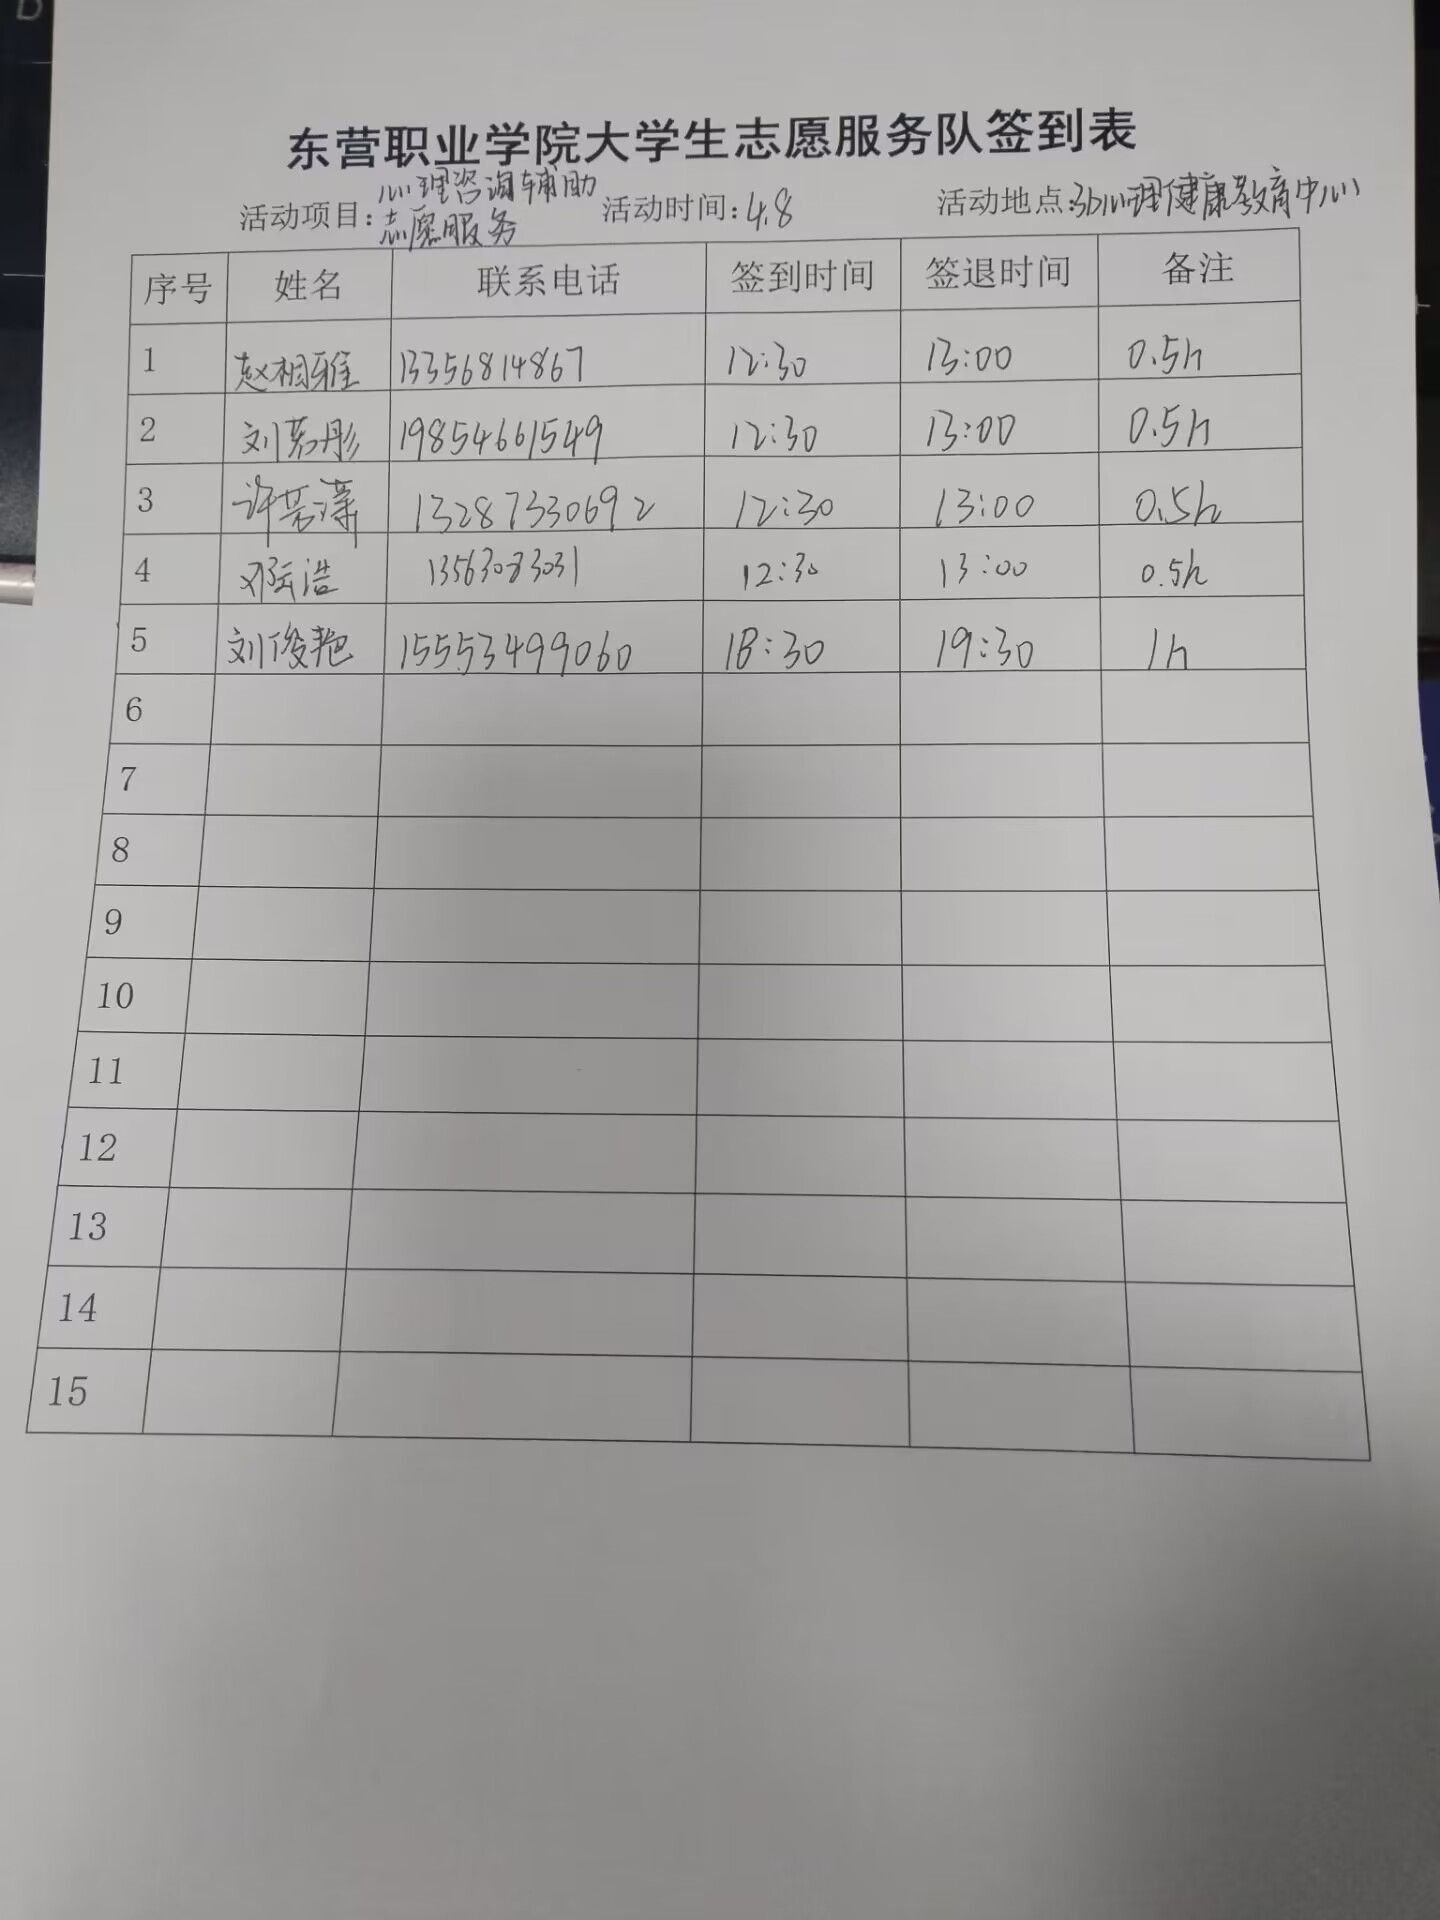 东营职业学院大学生志愿服务队签到表
活动项目:心理咨询辅助志愿服务 活动时间:4.8 活动地点:3b心理健康教育中心
序号 姓名 联系电话 签到时间 签退时间 备注
1 赵相雅 13356814867 12:30 13:00 0.5h
2 刘茗彤 19854661549 12:30 13:00 0.5h
3 许若漾 13287330692 12:30 13:00 0.5h
4 邓云浩 13563083031 12:30 13:00 0.5h
5 刘俊艳 15553499060 18:30 19:30 1h
6
7
8
9
10
11
12
13
14
15